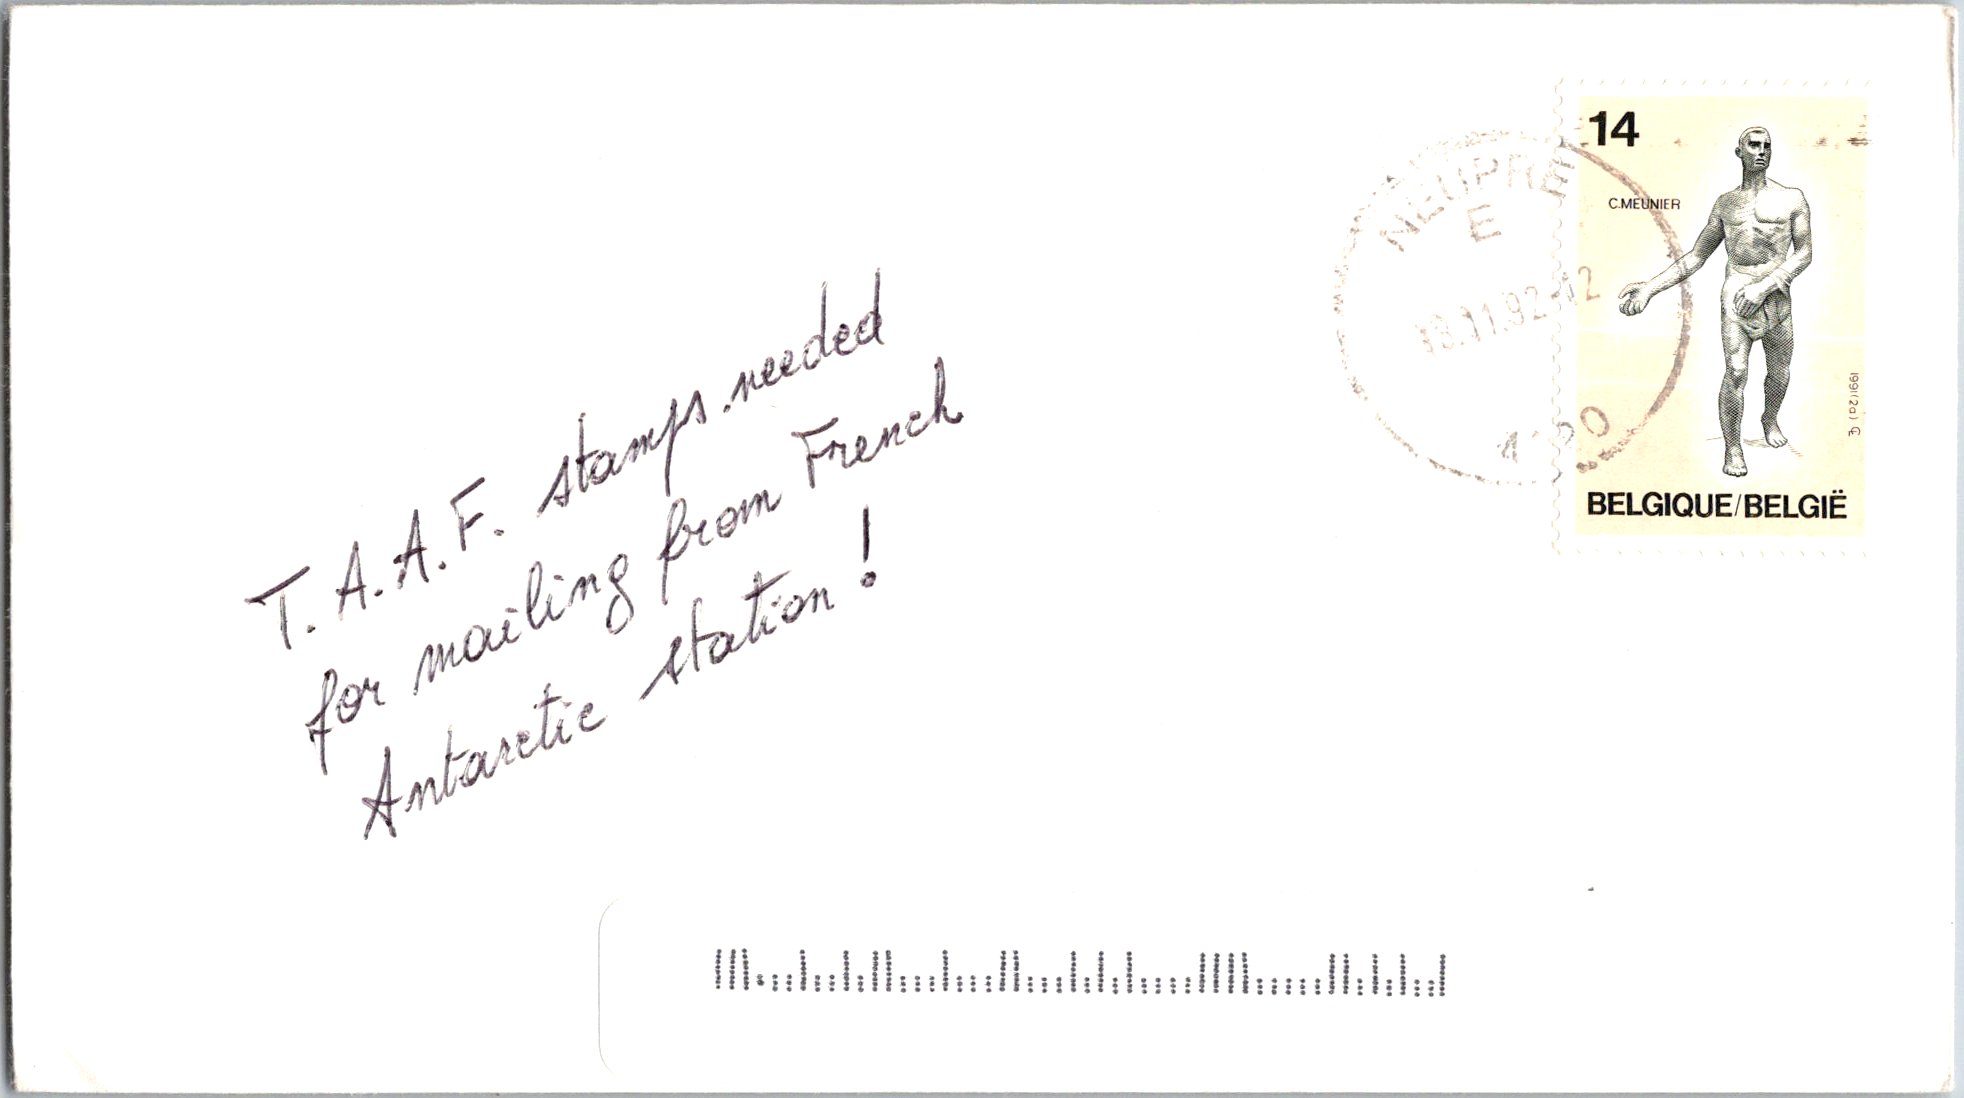 14
C.MEUNIER
NEUPRE
E
18.11.92-12
1991(2a)
BELGIQUE/BELGIË
T.A.A.F. stamps needed
for mailing from French
Antarctic station !